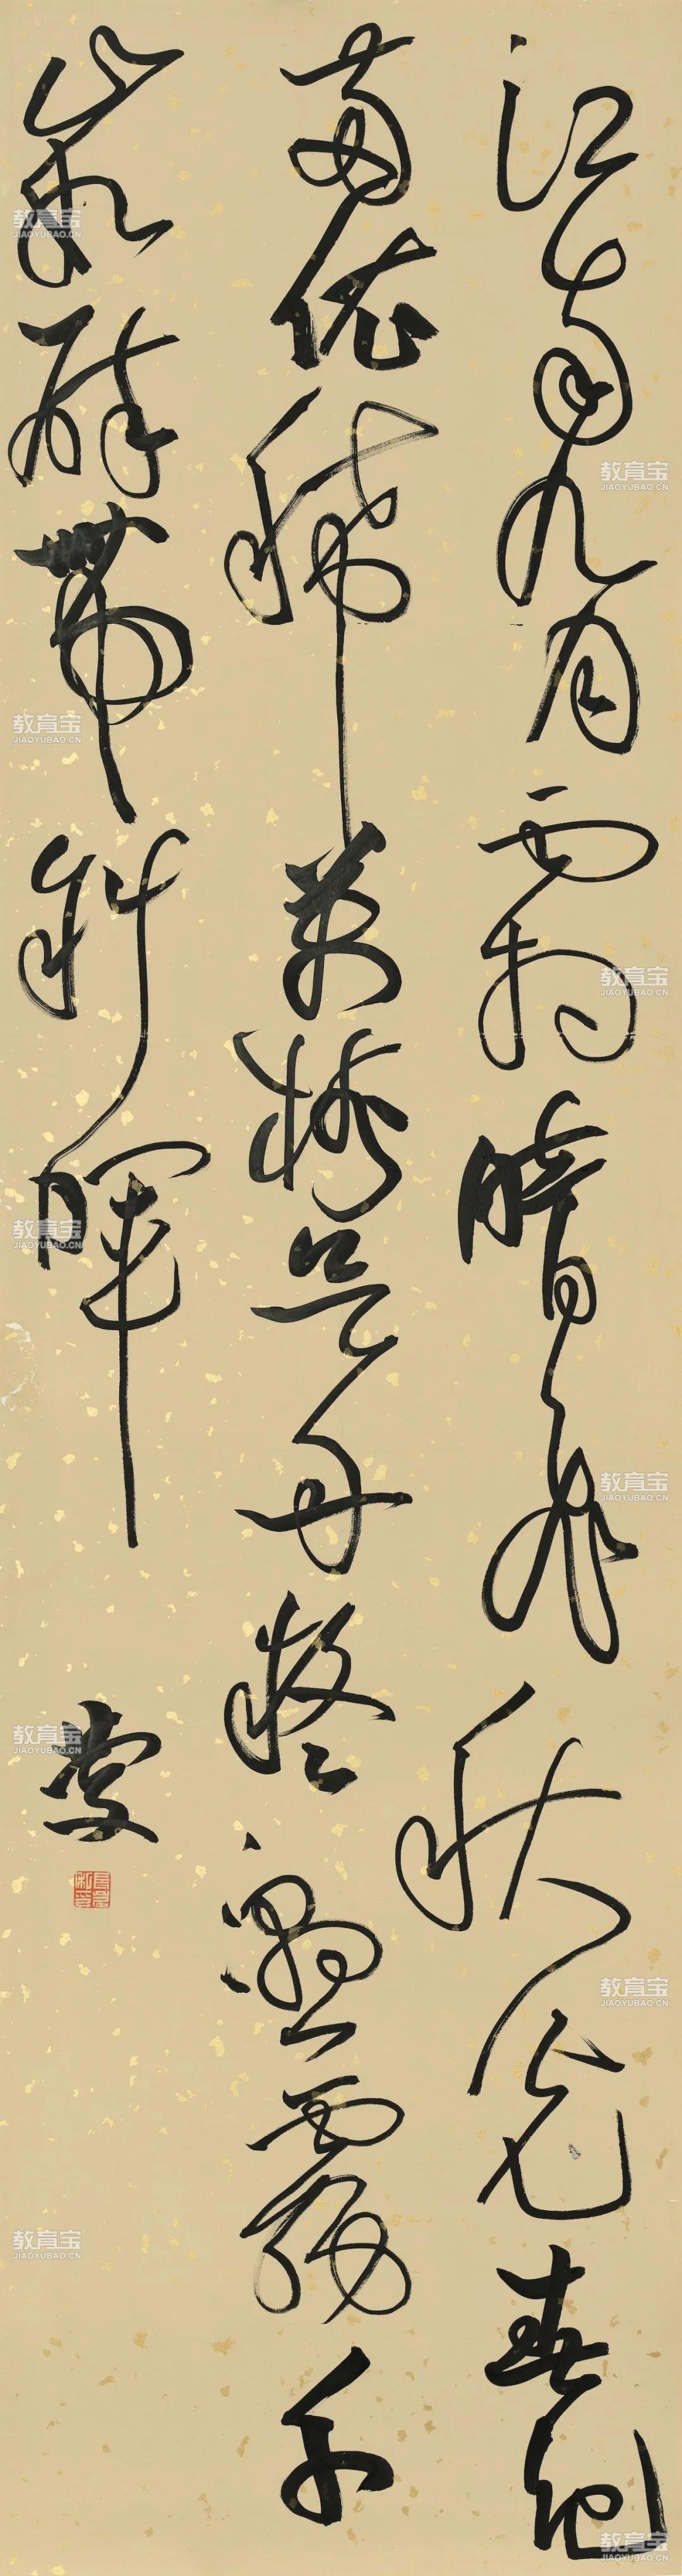 江南九月霜暗飛秋色春
兩依稀萬丹凝露千
巖醉帶斜暉
教育宝
JIAOYUBAO.CN
教育宝
JIAOYUBAO.CN
教育宝
JIAOYUBAO.CN
教育宝
JIAOYUBAO.CN
教育宝
JIAOYUBAO.CN
教育宝
JIAOYUBAO.CN
教育宝
JIAOYUBAO.CN
教育宝
JIAOYUBAO.CN
教育宝
JIAOYUBAO.CN
教育宝
JIAOYUBAO.CN